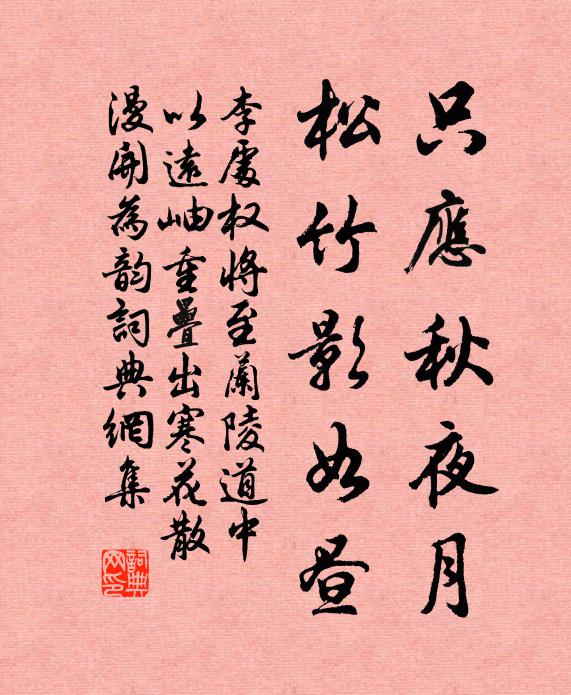 只應秋夜月
松竹影如昼
李處权將至蘭陵道中
以遠岫重疊出寒花散
漫開為韵詞典網集
詞典網印